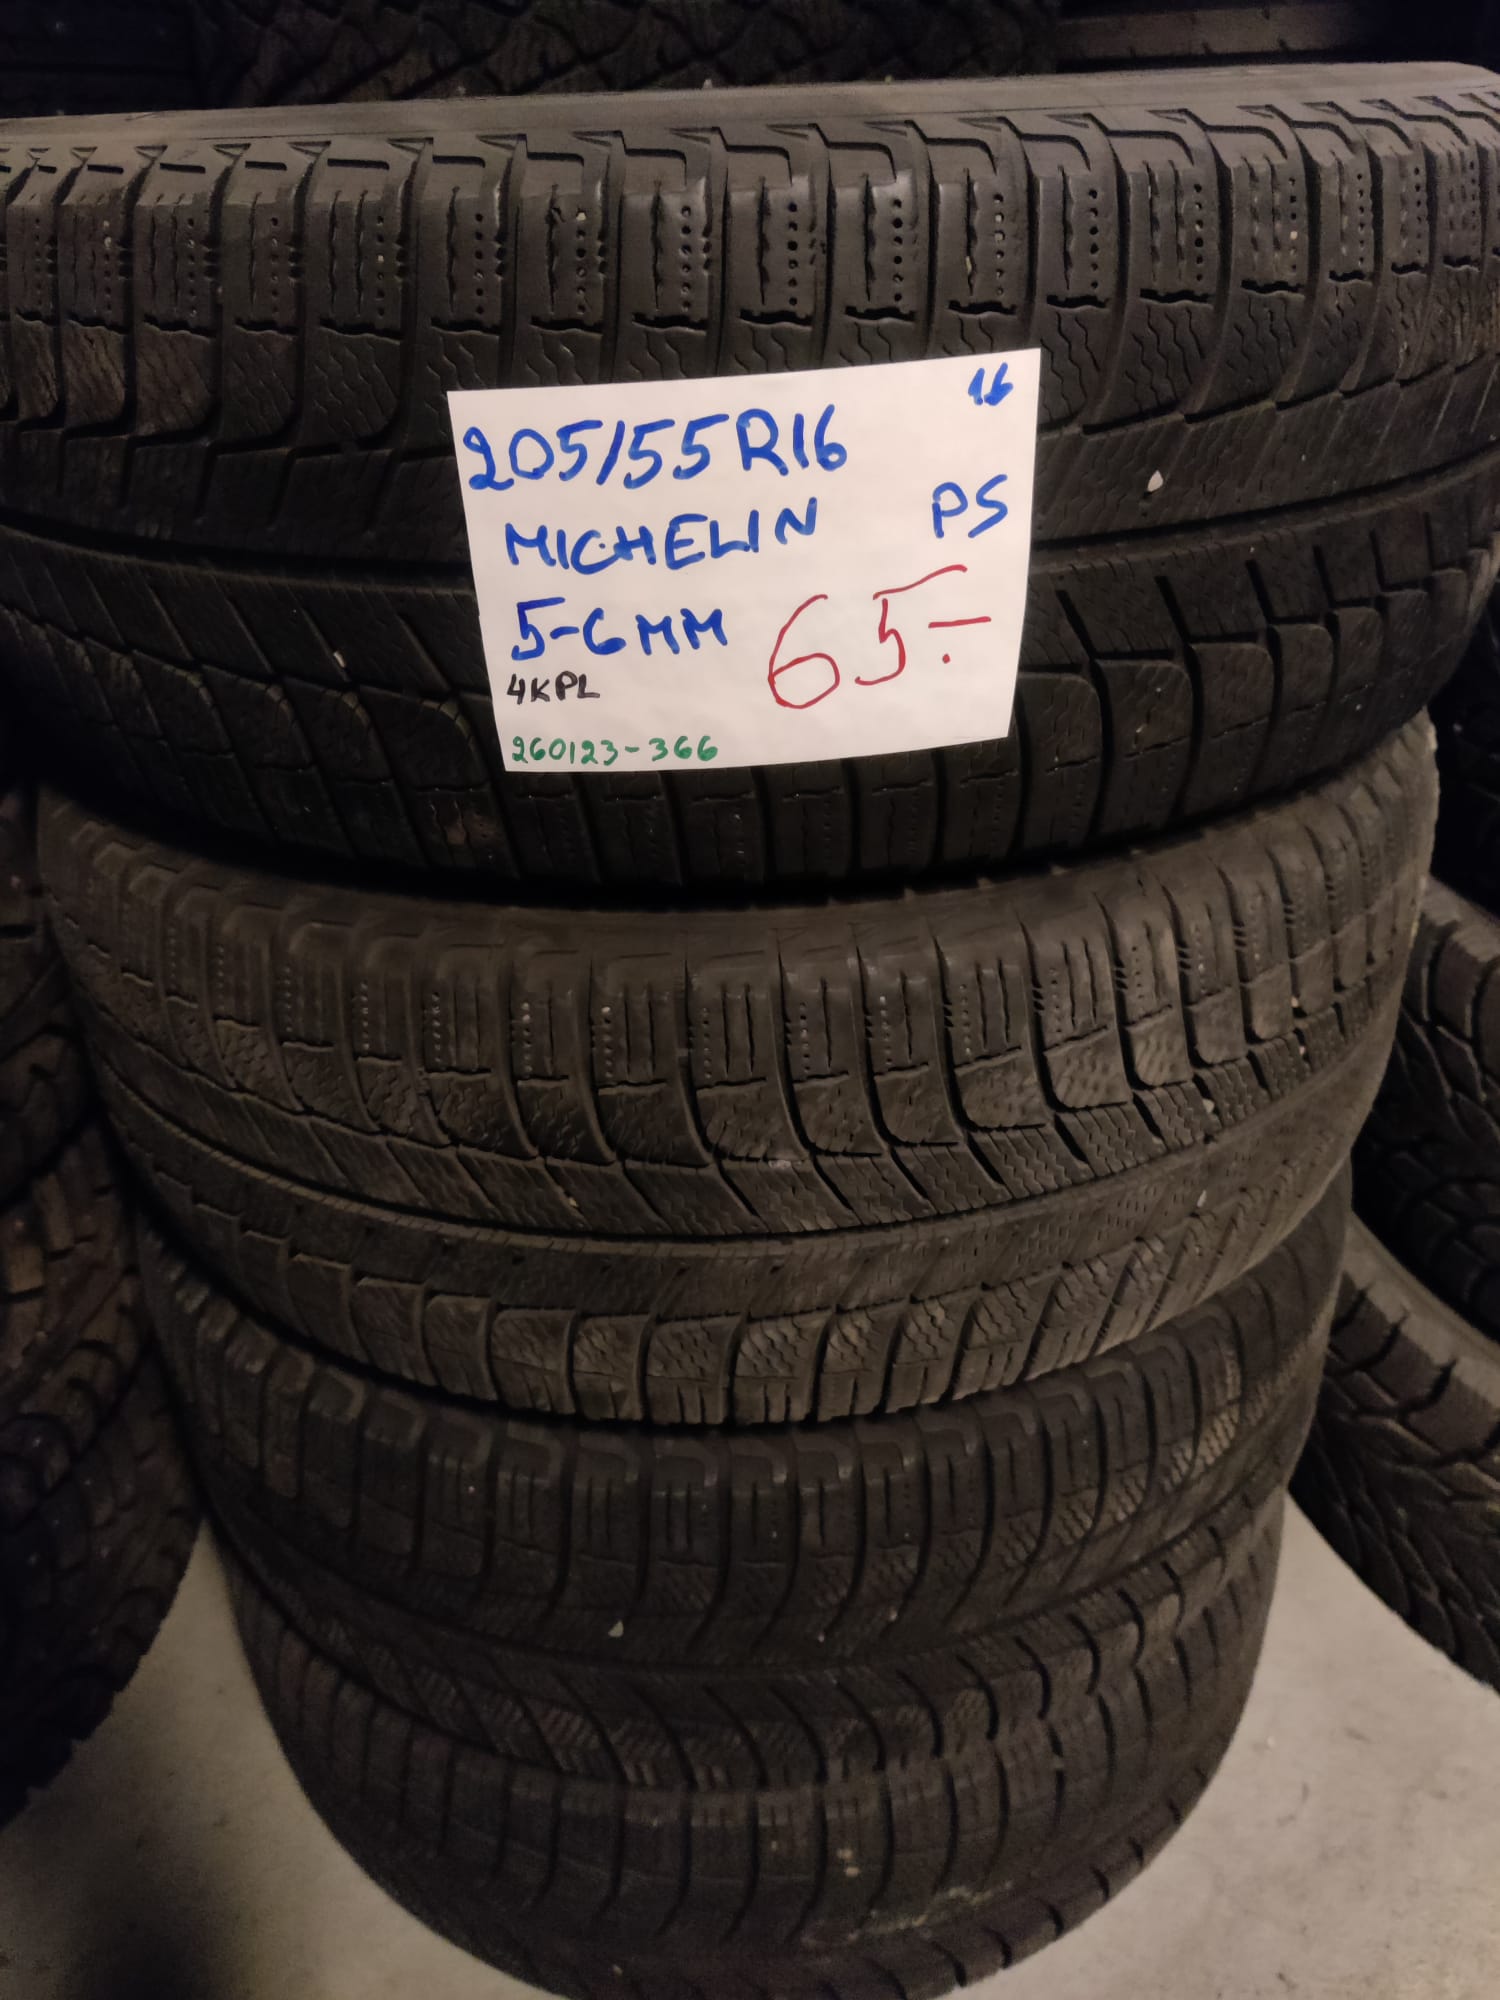 16
205/55R16
MICHELIN PS
5-6MM 65.-
4KPL
260123-366